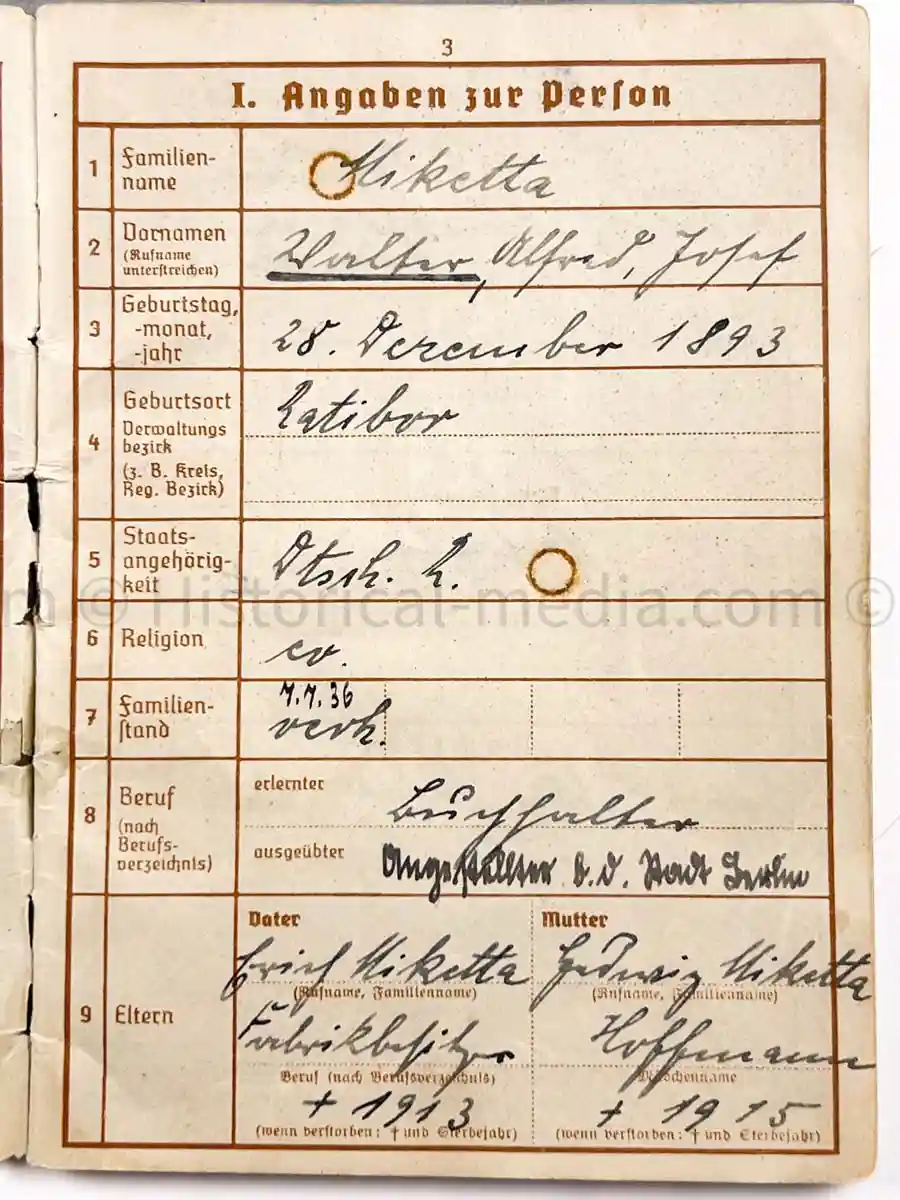 3
I. Angaben zur Person
1 Familien-
name
Miketta
2 Vornamen
(Rufname
unterstreichen)
Walter, Alfred, Josef
3 Geburtstag,
-monat,
-jahr
28. Dezember 1893
4 Geburtsort
Verwaltungs
bezirk
(z. B. Kreis,
Reg. Bezirk)
Ratibor
5 Staats-
angehörig-
keit
Dtsch. R.
m © Historical-media.com ©
6 Religion
ev.
7 Familien-
stand
7.7.36
verh.
8 Beruf
(nach
Berufs-
verzeichnis)
erlernter
Buchhalter
ausgeübter
Angestellter b. d. Stadt Berlin
9 Eltern
Vater
Erich Miketta
(Rufname, Familienname)
Fabrikbesitzer
Beruf (nach Berufsverzeichnis)
† 1913
(wenn verstorben: † und Sterbejahr)
Mutter
Hedwig Miketta
(Rufname, Familienname)
Hoffmann
Mädchenname
† 1915
(wenn verstorben: † und Sterbejahr)